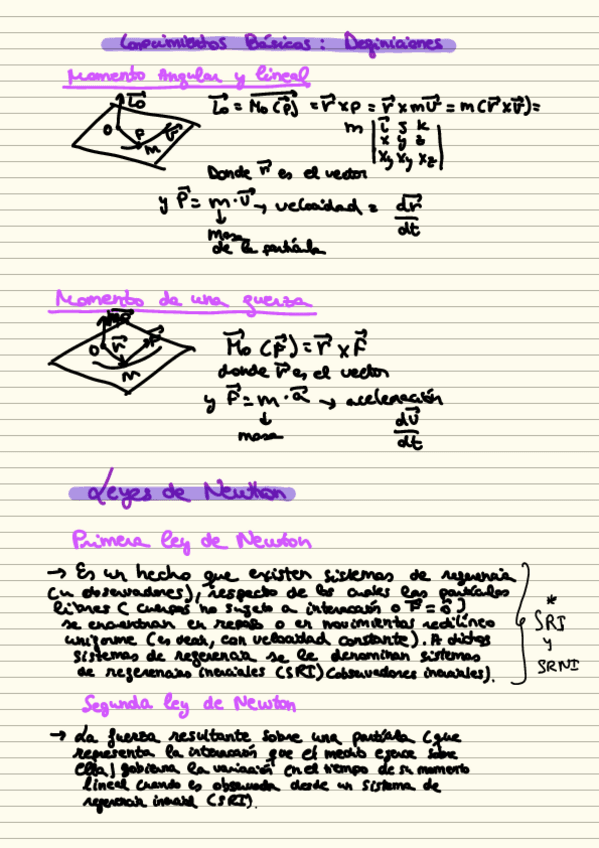 Conocimientos Básicos: Definiciones
Momento Angular y lineal
L⃗o
O P v⃗
m
L⃗o = M⃗o (p⃗) = r⃗ x p = r⃗ x mv⃗ = m (r⃗ x v⃗) =
m | i⃗ j k |
| x y z |
Donde r⃗ es el vector
y p⃗ = m · v⃗ → velocidad = dr⃗/dt
↓
masa
de la partícula
Momento de una fuerza
O r⃗ F⃗
m
M⃗o (F⃗) = r⃗ x F⃗
donde r⃗ es el vector
y F⃗ = m · a⃗ → aceleración
↓ dv⃗/dt
masa
Leyes de Newton
Primera ley de Newton
→ Es un hecho que existen sistemas de referencia
(u observadores), respecto de los cuales las partículas
libres (cuerpos no sujeto a interacción o F⃗ = 0⃗)
se encuentran en reposo o en movimientos rectilíneo
uniforme (es decir, con velocidad constante). A dichos
sistemas de referencia se le denominan sistemas
de referencias inerciales (SRI) (observadores inerciales).
*
SRI
y
SRNI
Segunda ley de Newton
→ La fuerza resultante sobre una partícula (que
representa la interacción que el medio ejerce sobre
ella) gobierna la variación en el tiempo de su momento
lineal cuando es observada desde un sistema de
referencia inercial (SRI).